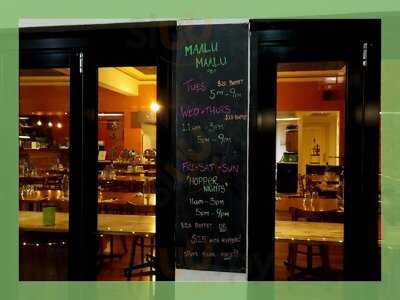 MAALU
MAALU
TUES $20 BUFFET
5PM-9PM
WED & THURS
11am - 3pm
5pm - 9pm
FRI SAT SUN
"HOPPER NIGHTS"
11am - 3pm
5pm - 9pm
BUFFET
$25 WITH HOPPERS!